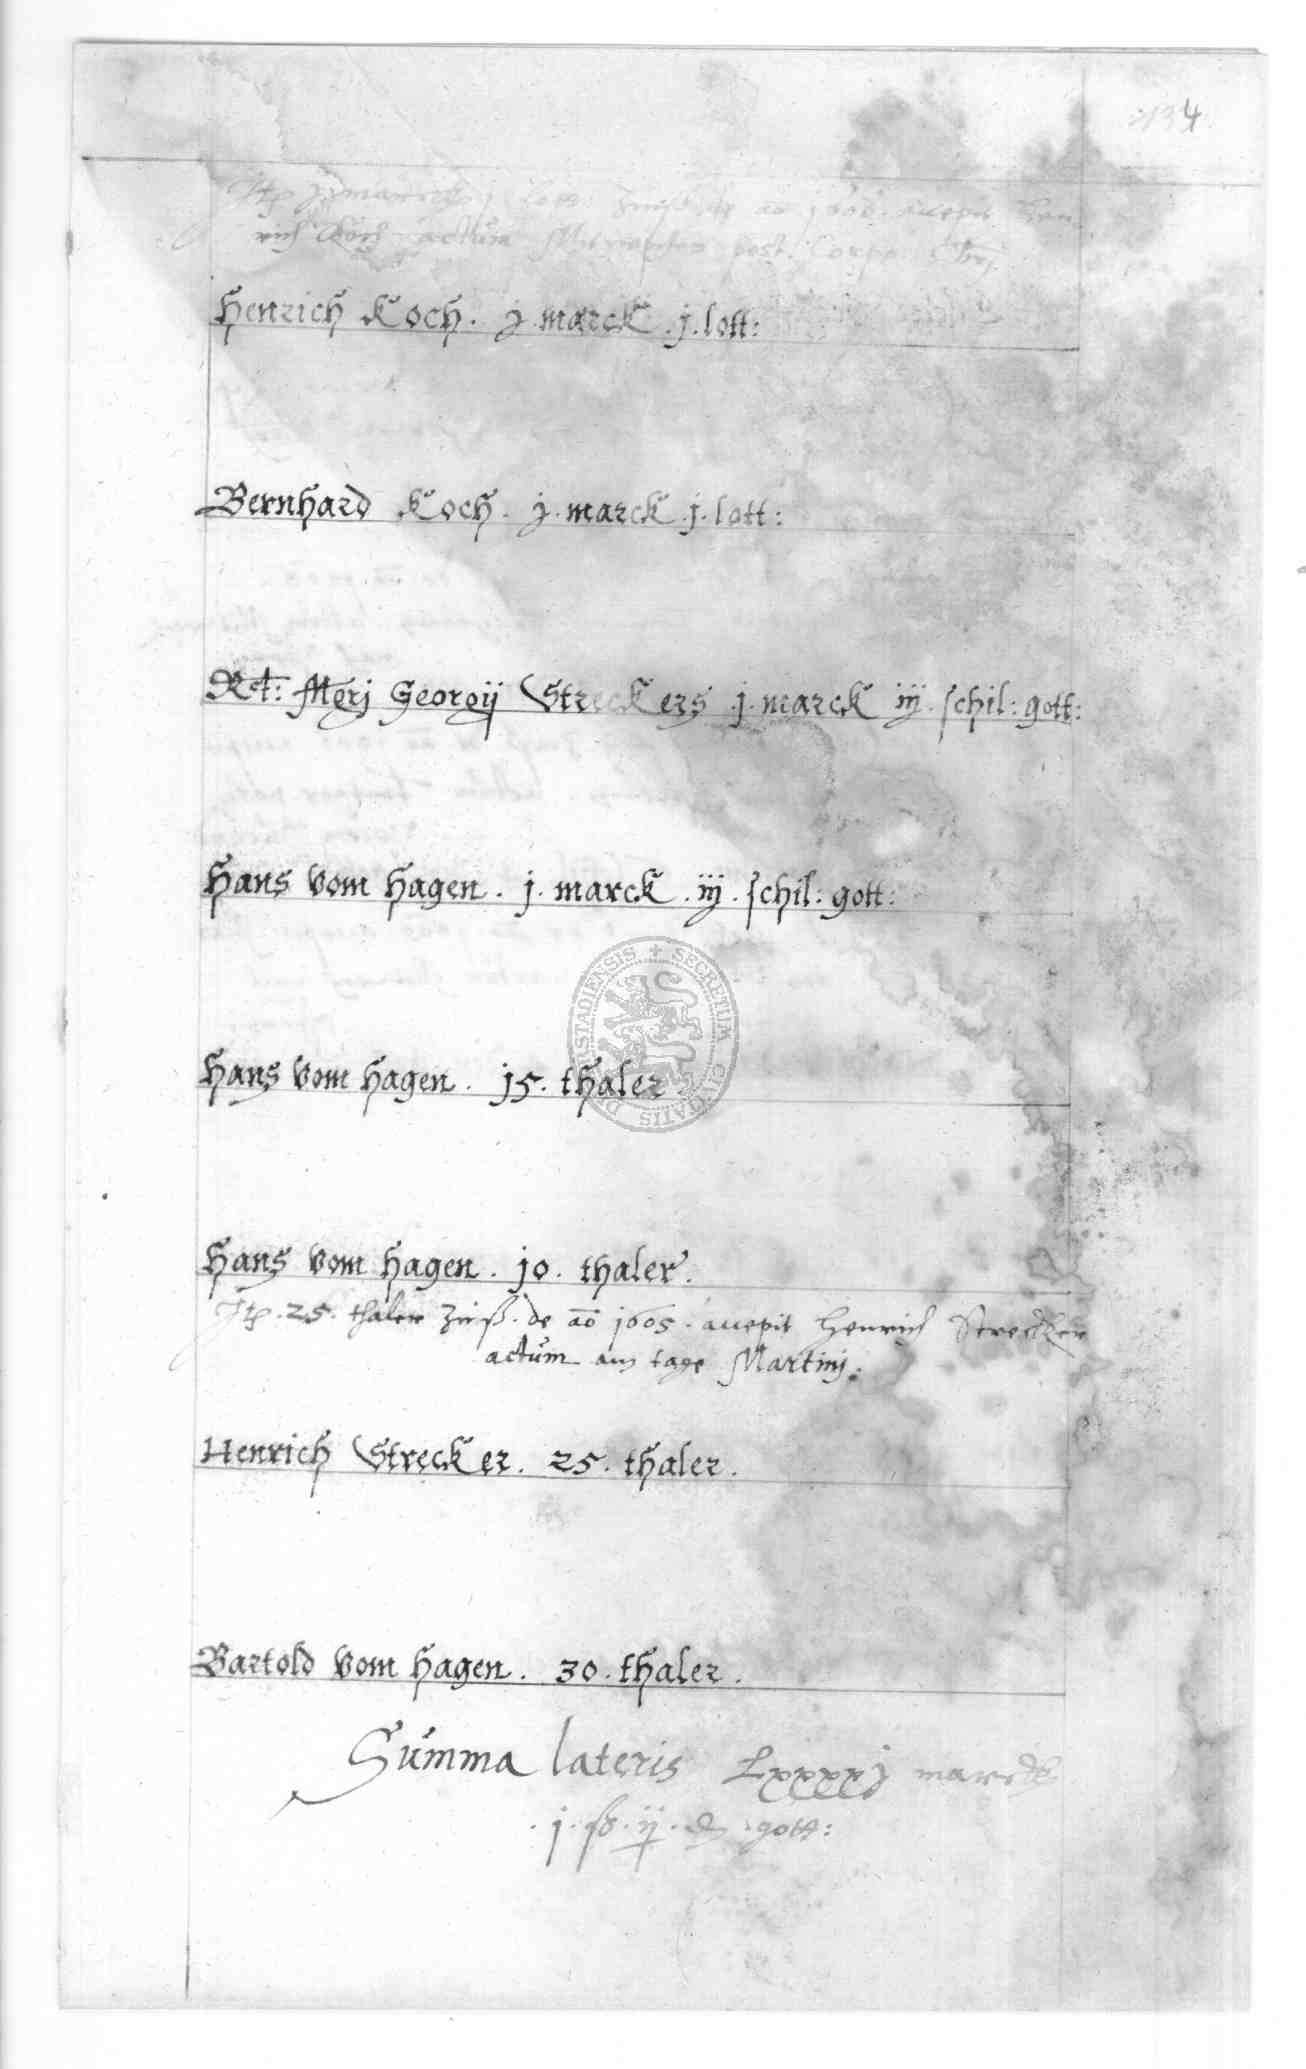 134
marck j lott: Zinß de ao 1606. accepit Hen
rich Koch actum Mitwochen post. Corpo: Chri.
Henrich Koch. j. marck. j. lott:
Bernhard Koch. j. marck. j. lott:
Rct: Mgri Georgij Streckers. j. marck iij. schil: gott:
Hans vom Hagen. j. marck. iij. schil: gott:
SECRETUM CIVITATIS STADIENSIS
Hans vom Hagen. 15. thaler
Hans vom Hagen. 10. thaler.
Itp. 25. thaler Zinß. de aō 1605. accepit Henrich Strecker
actum am tage Martinj.
Henrich Strecker. 25. thaler.
Bartold vom Hagen. 30. thaler.
Summa lateris Lxxxxj marck
. j. ß. ij. d gott: